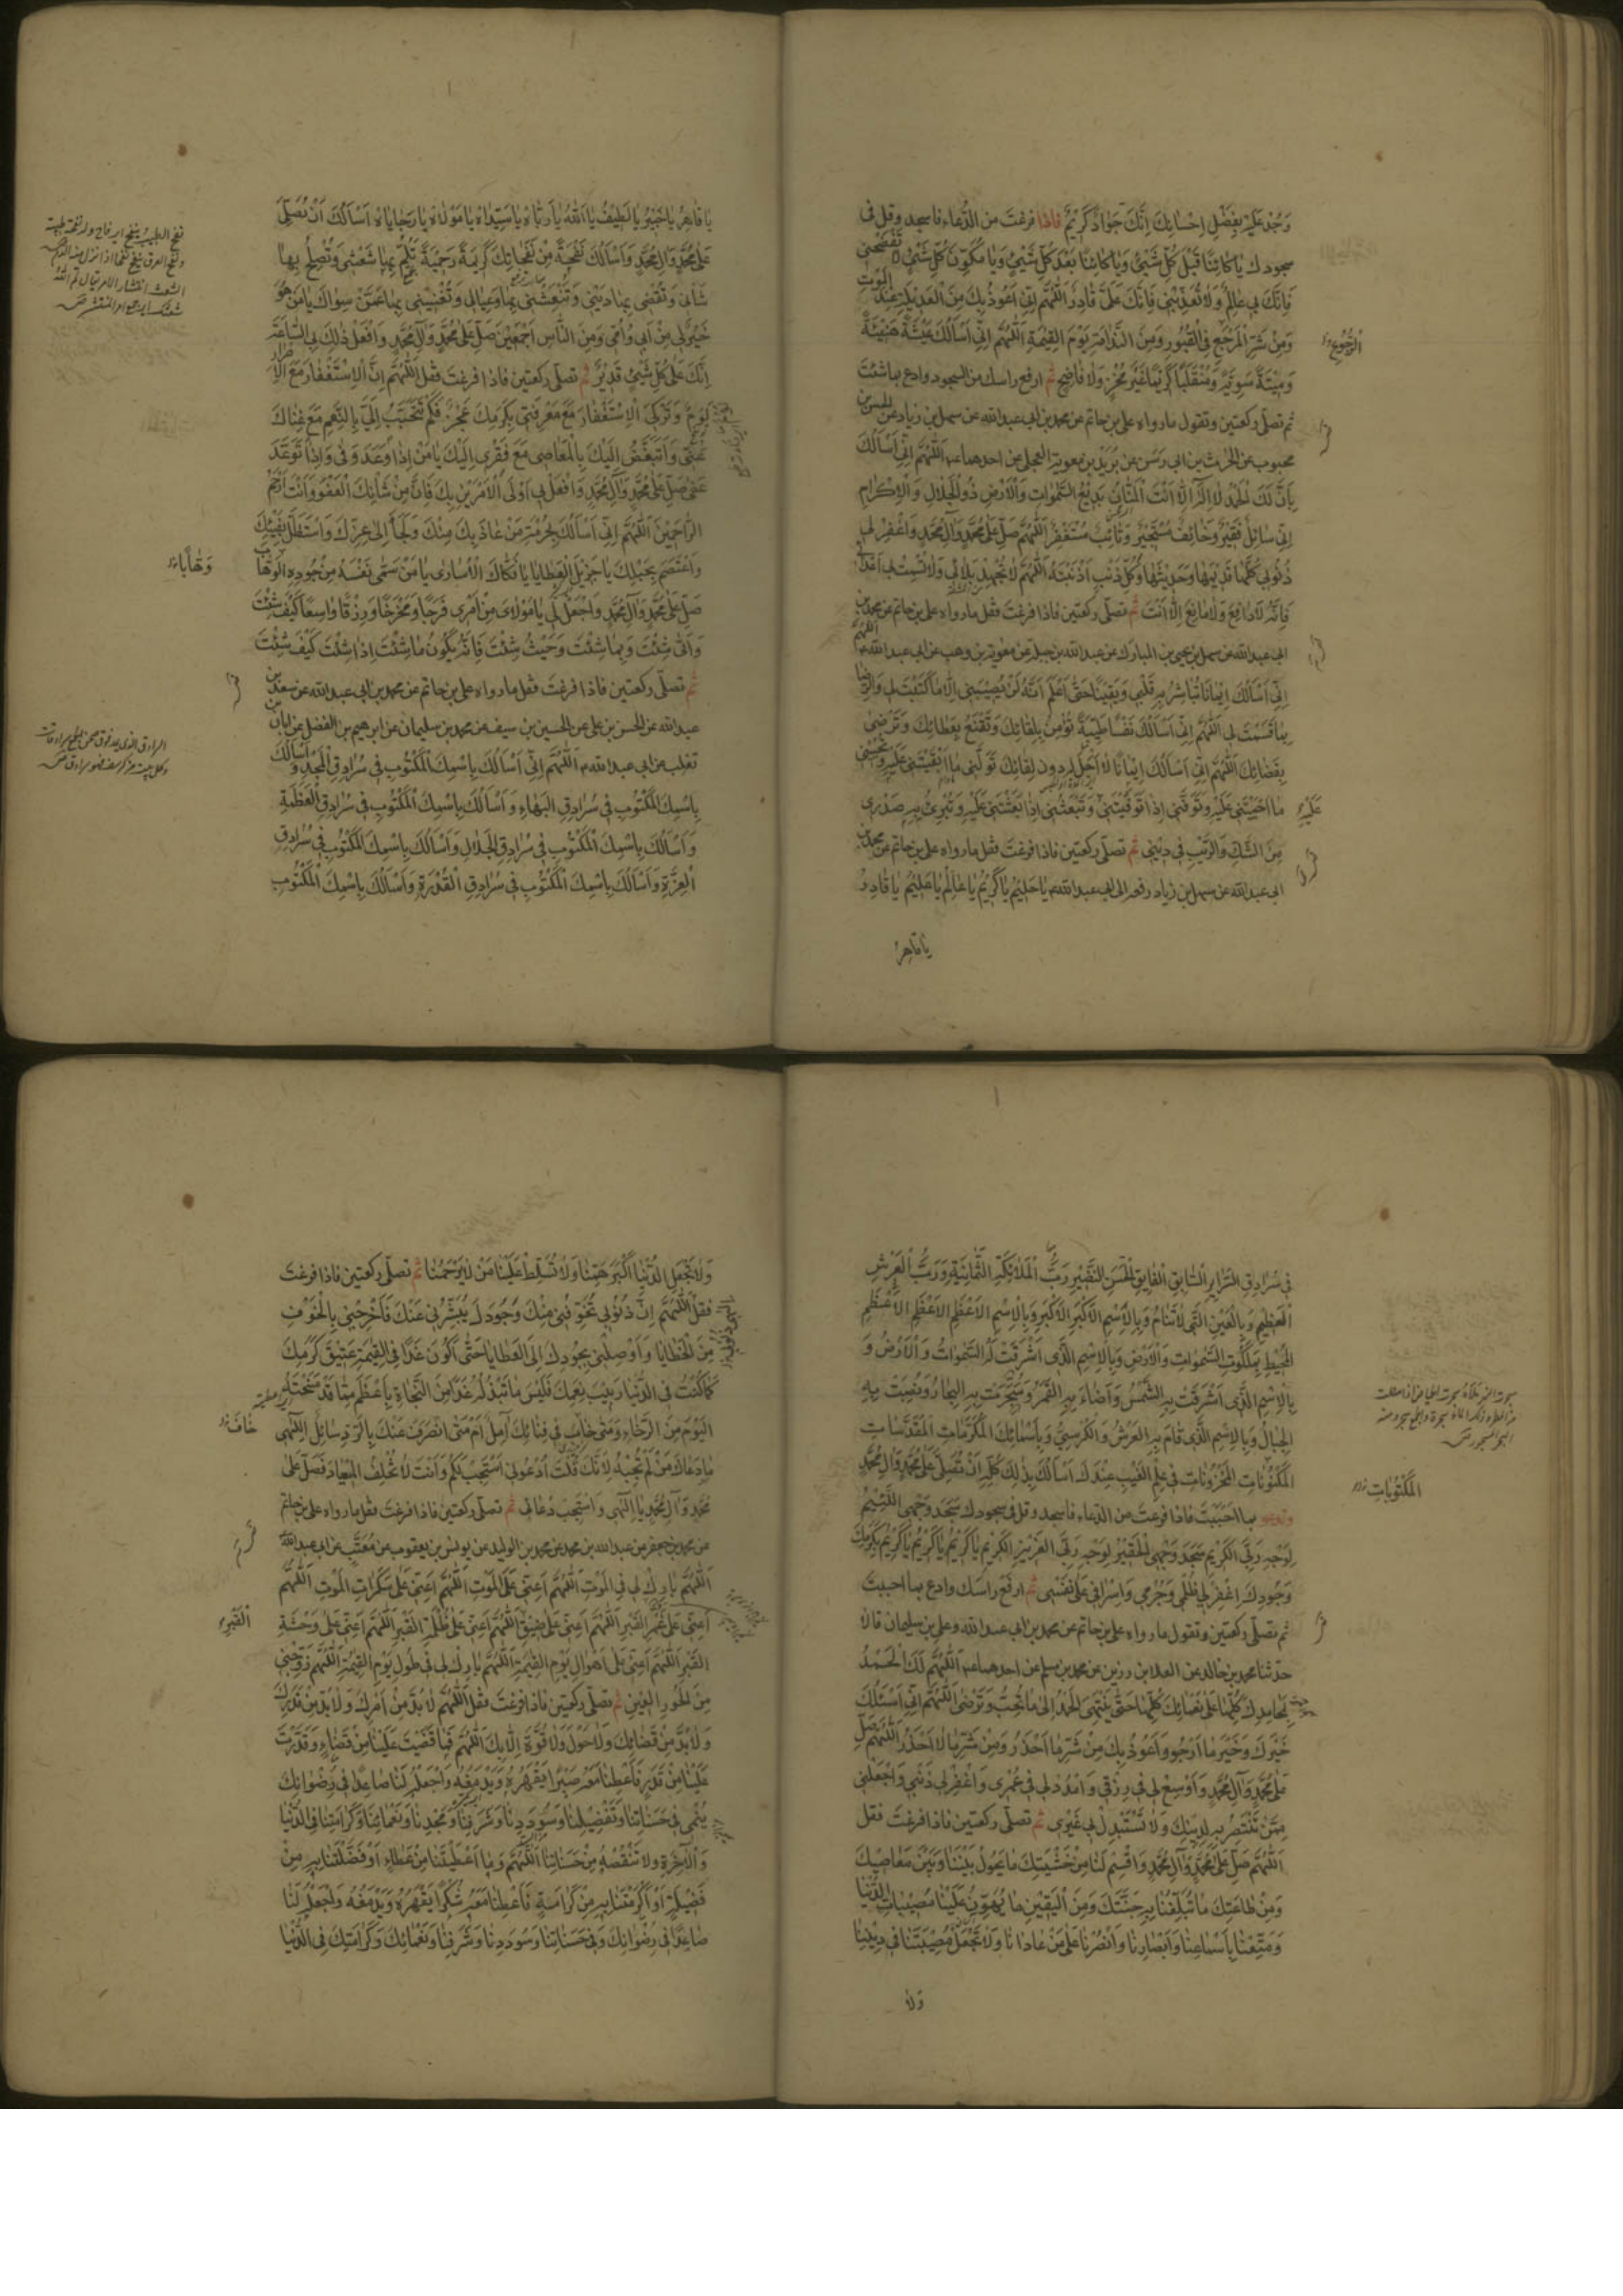 وَجُدْ عَلَيَّ بِفَضْلِ اِحْسَانِكَ اِنَّكَ جَوَادٌ كَرِيْمٌ فاذا فرغتَ من الدُّعاء فاسجد وقل فى
سجودك يَا كَائِنًا قَبْلَ كُلِّ شَيْئٍ وَيَا كَائِنًا بَعْدَ كُلِّ شَيْئٍ وَيَا مُكَوِّنَ كُلِّ شَيْئٍ لَا تَفْضَحْنِي
فَاِنَّكَ بِي عَالِمٌ وَلَا تُعَذِّبْنِي فَاِنَّكَ عَلَيَّ قَادِرٌ اَللّٰهُمَّ اِنِّي اَعُوذُ بِكَ مِنَ الْعَدِيْلَةِ عِنْدَ الْمَوْتِ
وَمِنْ شَرِّ الْمَرْجَعِ فِي الْقُبُورِ وَمِنَ النَّدَامَةِ يَوْمَ الْقِيٰمَةِ اَللّٰهُمَّ اِنِّي اَسْأَلُكَ عِيْشَةً هَنِيْئَةً
وَمِيْتَةً سَوِيَّةً وَمُنْقَلَبًا كَرِيْمًا غَيْرَ مُخْزٍ وَلَا فَاضِحٍ ثم ارفع راسك من السجود وادع بما شئت
ثم تصلّى ركعتين وتقول ما رواه على بن حاتم عن محمد بن ابى عبدالله عن سهل بن زياد عن الحسن بن
محبوب عن الحرث بن ابى رسن عن بُرَيْد بن معوية العجلى عن احدهما عـ اَللّٰهُمَّ اِنِّي اَسْأَلُكَ
بِاَنَّ لَكَ الْحَمْدَ لَا اِلٰهَ اِلَّا اَنْتَ الْمَنَّانُ بَدِيْعُ السَّمٰوَاتِ وَالْاَرْضِ ذُو الْجَلَالِ وَالْاِكْرَامِ
اِنِّي سَائِلٌ فَقِيْرٌ وَخَائِفٌ مُسْتَجِيْرٌ وَتَائِبٌ مُسْتَغْفِرٌ اَللّٰهُمَّ صَلِّ عَلٰى مُحَمَّدٍ وَآلِ مُحَمَّدٍ وَاغْفِرْ لِي
ذُنُوبِي كُلَّهَا قَدِيْمَهَا وَحَدِيْثَهَا وَكُلَّ ذَنْبٍ اَذْنَبْتُهُ اَللّٰهُمَّ لَا تُجْهِدْ بَلَائِي وَلَا تُشْمِتْ بِي اَعْدَائِي
فَاِنَّهُ لَا دَافِعَ وَلَا مَانِعَ اِلَّا اَنْتَ ثم تصلّى ركعتين فاذا فرغتَ فقل ما رواه على بن حاتم عن محمد بن
ابى عبدالله عن سهل بن يحيى بن المبارك عن عبدالله بن جبلة عن معوية بن وهب عن ابى عبدالله عـ اَللّٰهُمَّ
اِنِّي اَسْأَلُكَ اِيْمَانًا تُبَاشِرُ بِهِ قَلْبِي وَيَقِيْنًا حَتّٰى اَعْلَمَ اَنَّهُ لَنْ يُصِيْبَنِي اِلَّا مَا كَتَبْتَ لِي وَالرِّضَا
بِمَا قَسَمْتَ لِي اَللّٰهُمَّ اِنِّي اَسْأَلُكَ نَفْسًا طَيِّبَةً تُؤْمِنُ بِلِقَائِكَ وَتَقْنَعُ بِعَطَائِكَ وَتَرْضَى
بِقَضَائِكَ اَللّٰهُمَّ اِنِّي اَسْأَلُكَ اِيْمَانًا لَا اَجَلَ لَهُ دُونَ لِقَائِكَ تَوَلَّنِي مَا اَبْقَيْتَنِي عَلَيْهِ وَتُحْيِيْنِي
مَا اَحْيَيْتَنِي عَلَيْهِ وَتَوَفَّنِي اِذَا تَوَفَّيْتَنِي وَتَبْعَثُنِي اِذَا بَعَثْتَنِي عَلَيْهِ وَتُبْرِئُ بِهِ صَدْرِي
مِنَ الشَّكِّ وَالرَّيْبِ فِي دِيْنِي ثم تصلّى ركعتين فاذا فرغت فقل ما رواه على بن حاتم عن محمد بن
ابى عبدالله عن سهل بن زياد رفعه الى ابى عبدالله عـ يَا حَلِيْمُ يَا كَرِيْمُ يَا عَالِمُ يَا عَلِيْمُ يَا قَادِرُ
يا قاهر
يَا قَاهِرُ يَا خَبِيْرُ يَا لَطِيْفُ يَا اَللهُ يَا رَبَّاهْ يَا سَيِّدَاهْ يَا مَوْلَاهْ يَا رَجَايَاهْ اَسْأَلُكَ اَنْ تُصَلِّيَ
عَلٰى مُحَمَّدٍ وَآلِ مُحَمَّدٍ وَاَسْأَلُكَ نَفْحَةً مِنْ نَفَحَاتِكَ كَرِيْمَةً رَحِيْمَةً تَلُمُّ بِهَا شَعَثِي وَتُصْلِحُ بِهَا
شَأْنِي وَتَقْضِي بِهَا دَيْنِي وَتَنْعَشُنِي بِهَا وَعِيَالِي وَتُغْنِيْنِي بِهَا عَمَّنْ سِوَاكَ يَا مَنْ هُوَ
خَيْرٌ لِي مِنْ اَبِي وَاُمِّي وَمِنَ النَّاسِ اَجْمَعِيْنَ صَلِّ عَلٰى مُحَمَّدٍ وَآلِ مُحَمَّدٍ وَافْعَلْ ذٰلِكَ بِي السَّاعَةَ
اِنَّكَ عَلٰى كُلِّ شَيْئٍ قَدِيْرٌ ثم تصلّى ركعتين فاذا فرغت فقل اَللّٰهُمَّ اِنَّ الْاِسْتِغْفَارَ مَعَ الْاِصْرَارِ
لُؤْمٌ وَتَرْكِي الْاِسْتِغْفَارَ مَعَ مَعْرِفَتِي بِكَرَمِكَ عَجْزٌ فَكَمْ تَتَحَبَّبُ اِلَيَّ بِالنِّعَمِ مَعَ غِنَاكَ
عَنِّي وَاَتَبَغَّضُ اِلَيْكَ بِالْمَعَاصِي مَعَ فَقْرِي اِلَيْكَ يَا مَنْ اِذَا وَعَدَ وَفٰى وَاِذَا تَوَعَّدَ
عَفٰى صَلِّ عَلٰى مُحَمَّدٍ وَآلِ مُحَمَّدٍ وَافْعَلْ بِي اَوْلَى الْاَمْرَيْنِ بِكَ فَاِنَّ مِنْ شَأْنِكَ الْعَفْوَ وَاَنْتَ اَرْحَمُ
الرَّاحِمِيْنَ اَللّٰهُمَّ اِنِّي اَسْأَلُكَ بِحُرْمَةِ مَنْ عَاذَ بِكَ مِنْكَ وَلَجَأَ اِلٰى عِزِّكَ وَاسْتَظَلَّ بِفَيْئِكَ
وَاعْتَصَمَ بِحَبْلِكَ يَا جَزِيْلَ الْعَطَايَا يَا فَكَّاكَ الْاُسَارٰى يَا مَنْ سَمّٰى نَفْسَهُ مِنْ جُودِهِ الْوَهَّابَ
صَلِّ عَلٰى مُحَمَّدٍ وَآلِ مُحَمَّدٍ وَاجْعَلْ لِي يَا مَوْلَايَ مِنْ اَمْرِي فَرَجًا وَمَخْرَجًا وَرِزْقًا وَاسِعًا كَيْفَ شِئْتَ
وَاَنّٰى شِئْتَ وَبِمَا شِئْتَ وَحَيْثُ شِئْتَ فَاِنَّهُ يَكُونُ مَا شِئْتَ اِذَا شِئْتَ كَيْفَ شِئْتَ
ثم تصلّى ركعتين فاذا فرغت فقل ما رواه على بن حاتم عن محمد بن ابى عبدالله عن سعد بن
عبدالله عن الحسن بن على عن الحسين بن سيف عن محمد بن سليمان عن ابرهيم بن الفضل عن ابان بن
تغلب عن ابى عبدالله عـ اَللّٰهُمَّ اِنِّي اَسْأَلُكَ بِاسْمِكَ الْمَكْتُوبِ فِي سُرَادِقِ الْمَجْدِ وَاَسْأَلُكَ
بِاسْمِكَ الْمَكْتُوبِ فِي سُرَادِقِ الْبَهَاءِ وَاَسْأَلُكَ بِاسْمِكَ الْمَكْتُوبِ فِي سُرَادِقِ الْعَظَمَةِ
وَاَسْأَلُكَ بِاسْمِكَ الْمَكْتُوبِ فِي سُرَادِقِ الْجَلَالِ وَاَسْأَلُكَ بِاسْمِكَ الْمَكْتُوبِ فِي سُرَادِقِ
الْعِزَّةِ وَاَسْأَلُكَ بِاسْمِكَ الْمَكْتُوبِ فِي سُرَادِقِ الْقُدْرَةِ وَاَسْأَلُكَ بِاسْمِكَ الْمَكْتُوبِ
وَهَّابًا
فِي سُرَادِقِ السَّرَائِرِ السَّابِقِ الْفَائِقِ الْحَسَنِ النَّضِيْرِ رَبِّ الْمَلَائِكَةِ الثَّمَانِيَةِ وَرَبِّ الْعَرْشِ
الْعَظِيْمِ وَبِالْعَيْنِ الَّتِي لَا تَنَامُ وَبِالْاِسْمِ الْاَكْبَرِ الْاَكْبَرِ وَبِالْاِسْمِ الْاَعْظَمِ الْاَعْظَمِ الْاَعْظَمِ
الْمُحِيْطِ بِمَلَكُوتِ السَّمٰوَاتِ وَالْاَرْضِ وَبِالْاِسْمِ الَّذِي اَشْرَقَتْ لَهُ السَّمٰوَاتُ وَالْاَرْضُ وَ
بِالْاِسْمِ الَّذِي اَشْرَقَتْ بِهِ الشَّمْسُ وَاَضَاءَ بِهِ الْقَمَرُ وَسُجِّرَتْ بِهِ الْبِحَارُ وَنُصِبَتْ بِهِ
الْجِبَالُ وَبِالْاِسْمِ الَّذِي قَامَ بِهِ الْعَرْشُ وَالْكُرْسِيُّ وَبِاَسْمَائِكَ الْمُكَرَّمَاتِ الْمُقَدَّسَاتِ
الْمَكْنُونَاتِ الْمَخْزُونَاتِ فِي عِلْمِ الْغَيْبِ عِنْدَكَ اَسْأَلُكَ بِذٰلِكَ كُلِّهِ اَنْ تُصَلِّيَ عَلٰى مُحَمَّدٍ وَآلِ مُحَمَّدٍ
وتدعو بما احببت فاذا فرغت من الدعاء فاسجد وقل فى سجودك سَجَدَ وَجْهِيَ اللَّئِيْمُ
لِوَجْهِ رَبِّيَ الْكَرِيْمِ سَجَدَ وَجْهِيَ الْحَقِيْرُ لِوَجْهِ رَبِّيَ الْعَزِيْزِ الْكَرِيْمِ يَا كَرِيْمُ يَا كَرِيْمُ يَا كَرِيْمُ بِكَرَمِكَ
وَجُودِكَ اِغْفِرْ لِي ظُلْمِي وَجُرْمِي وَاِسْرَافِي عَلٰى نَفْسِي ثم ارفع راسك وادع بما احببت
ثم تصلّى ركعتين وتقول ما رواه على بن حاتم عن محمد بن ابى عبدالله وعلى بن سليمان قالا
حدثنا محمد بن خالد عن العلا بن رزين عن محمد بن مسلم عن احدهما عـ اَللّٰهُمَّ لَكَ الْحَمْدُ
بِمَحَامِدِكَ كُلِّهَا عَلٰى نَعْمَائِكَ كُلِّهَا حَتّٰى يَنْتَهِيَ الْحَمْدُ اِلٰى مَا تُحِبُّ وَتَرْضٰى اَللّٰهُمَّ اِنِّي اَسْئَلُكَ
خَيْرَكَ وَخَيْرَ مَا اَرْجُو وَاَعُوذُ بِكَ مِنْ شَرِّ مَا اَحْذَرُ وَمِنْ شَرِّ مَا لَا اَحْذَرُ اَللّٰهُمَّ صَلِّ
عَلٰى مُحَمَّدٍ وَآلِ مُحَمَّدٍ وَاَوْسِعْ لِي فِي رِزْقِي وَامْدُدْ لِي فِي عُمْرِي وَاغْفِرْ لِي ذَنْبِي وَاجْعَلْنِي
مِمَّنْ تَنْتَصِرُ بِهِ لِدِيْنِكَ وَلَا تَسْتَبْدِلْ بِي غَيْرِي ثم تصلّى ركعتين فاذا فرغت فقل
اَللّٰهُمَّ صَلِّ عَلٰى مُحَمَّدٍ وَآلِ مُحَمَّدٍ وَاقْسِمْ لَنَا مِنْ خَشْيَتِكَ مَا يَحُولُ بَيْنَنَا وَبَيْنَ مَعَاصِيْكَ
وَمِنْ طَاعَتِكَ مَا تُبَلِّغُنَا بِهِ جَنَّتَكَ وَمِنَ الْيَقِيْنِ مَا يُهَوِّنُ عَلَيْنَا مُصِيْبَاتِ الدُّنْيَا
وَمَتِّعْنَا بِاَسْمَاعِنَا وَاَبْصَارِنَا وَانْصُرْنَا عَلٰى مَنْ عَادَانَا وَلَا تَجْعَلْ مُصِيْبَتَنَا فِي دِيْنِنَا
ولا
وَلَا تَجْعَلِ الدُّنْيَا اَكْبَرَ هَمِّنَا وَلَا تُسَلِّطْ عَلَيْنَا مَنْ لَا يَرْحَمُنَا ثم تصلّى ركعتين فاذا فرغت
فقل اَللّٰهُمَّ اِنَّ ذُنُوْبِي تُخَوِّفُنِي مِنْكَ وَجُودَكَ يُبَشِّرُنِي عَنْكَ فَاَخْرِجْنِي بِالْخَوْفِ
مِنَ الْخَطَايَا وَاَوْصِلْنِي بِجُودِكَ اِلَى الْعَطَايَا حَتّٰى اَكُونَ غَدًا فِي الْقِيٰمَةِ عَتِيْقَ كَرَمِكَ
كَمَا كُنْتُ فِي الدُّنْيَا رَبِيْبَ نِعَمِكَ فَلَيْسَ مَا تَبْذُلُهُ غَدًا مِنَ النَّجَاةِ بِاَعْظَمَ مِمَّا قَدْ مَنَحْتَهُ
الْيَوْمَ مِنَ الرَّجَاءِ وَمَتٰى خَابَ فِي فِنَائِكَ آمِلٌ اَمْ مَتٰى انْصَرَفَ عَنْكَ بِالرَّدِّ سَائِلٌ اِلٰهِي
مَا دَعَاكَ مَنْ لَمْ تُجِبْهُ لِاَنَّكَ قُلْتَ اُدْعُونِي اَسْتَجِبْ لَكُمْ وَاَنْتَ لَا تُخْلِفُ الْمِيْعَادَ فَصَلِّ عَلٰى
مُحَمَّدٍ وَآلِ مُحَمَّدٍ يَا اِلٰهِي وَاسْتَجِبْ دُعَائِي ثم تصلّى ركعتين فاذا فرغت فقل ما رواه على بن حاتم
عن محمد بن جعفر عن عبدالله بن محمد عن محمد بن الوليد عن يونس بن يعقوب عن مُعَتِّب عن ابى عبدالله
اَللّٰهُمَّ بَارِكْ لِي فِي الْمَوْتِ اَللّٰهُمَّ اَعِنِّي عَلَى الْمَوْتِ اَللّٰهُمَّ اَعِنِّي عَلٰى سَكَرَاتِ الْمَوْتِ اَللّٰهُمَّ
اَعِنِّي عَلٰى غَمِّ الْقَبْرِ اَللّٰهُمَّ اَعِنِّي عَلٰى ضِيْقِ اَللّٰهُمَّ اَعِنِّي عَلٰى ظُلْمَةِ الْقَبْرِ اَللّٰهُمَّ اَعِنِّي عَلٰى وَحْشَةِ
الْقَبْرِ اَللّٰهُمَّ اَعِنِّي عَلٰى اَهْوَالِ يَوْمِ الْقِيٰمَةِ اَللّٰهُمَّ بَارِكْ لِي فِي طُولِ يَوْمِ الْقِيٰمَةِ اَللّٰهُمَّ زَوِّجْنِي
مِنَ الْحُورِ الْعِيْنِ ثم تصلّى ركعتين فاذا فرغت فقل اَللّٰهُمَّ لَا بُدَّ مِنْ اَمْرِكَ وَلَا بُدَّ مِنْ قَدَرِكَ
وَلَا بُدَّ مِنْ قَضَائِكَ وَلَا حَوْلَ وَلَا قُوَّةَ اِلَّا بِكَ اَللّٰهُمَّ فَمَا قَضَيْتَ عَلَيْنَا مِنْ قَضَاءٍ وَقَدَّرْتَ
عَلَيْنَا مِنْ قَدَرٍ فَاَعْطِنَا مَعَهُ صَبْرًا يَقْهَرُهُ وَيَدْمَغُهُ وَاجْعَلْهُ لَنَا صَاعِدًا فِي رِضْوَانِكَ
يُنْمِي فِي حَسَنَاتِنَا وَتَفْضِيْلِنَا وَسُوْدَدِنَا وَشَرَفِنَا وَمَجْدِنَا وَنَعْمَائِنَا وَكَرَامَتِنَا فِي الدُّنْيَا
وَالْآخِرَةِ وَلَا تَنْقُصْهُ مِنْ حَسَنَاتِنَا اَللّٰهُمَّ وَمَا اَعْطَيْتَنَا مِنْ عَطَاءٍ اَوْ فَضَّلْتَنَا بِهِ مِنْ
فَضِيْلَةٍ اَوْ اَكْرَمْتَنَا بِهِ مِنْ كَرَامَةٍ فَاَعْطِنَا مَعَهُ شُكْرًا يَقْهَرُهُ وَيَدْمَغُهُ وَاجْعَلْهُ لَنَا
صَاعِدًا فِي رِضْوَانِكَ وَفِي حَسَنَاتِنَا وَسُوْدَدِنَا وَشَرَفِنَا وَنَعْمَائِكَ وَكَرَامَتِكَ فِي الدُّنْيَا